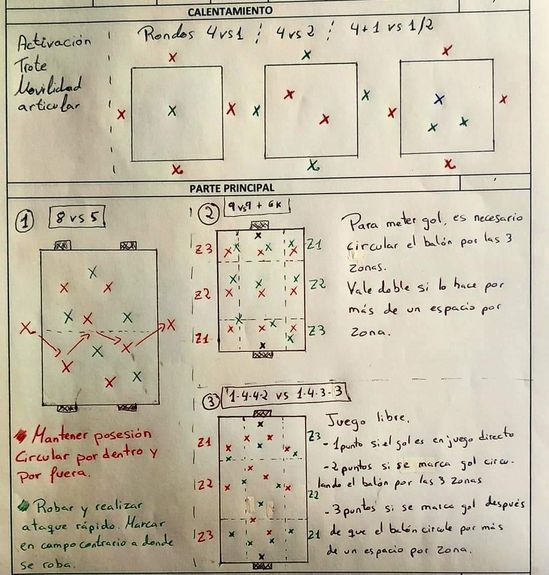 CALENTAMIENTO
Activación
Trote
Movilidad
articular
Rondos 4vs1 / 4vs2 / 4+1 vs 1/2
PARTE PRINCIPAL
1 8 vs 5
Mantener posesión
Circular por dentro y
por fuera.
Robar y realizar
ataque rápido. Marcar
en campo contrario a donde
se roba.
2 9vs9 + GK
Z3 Z1
Z2 Z2
Z1 Z3
Para meter gol, es necesario
circular el balón por las 3
zonas.
Vale doble si lo hace por
más de un espacio por
zona.
3 1-4-4-2 vs 1-4-3-3
Z1 Z3
Z2 Z2
Z3 Z1
Juego libre.
- 1 punto si el gol es en juego directo
- 2 puntos si se marca gol circu-
lando el balón por las 3 zonas
- 3 puntos si se marca gol después
de que el balón circule por más
de un espacio por zona.